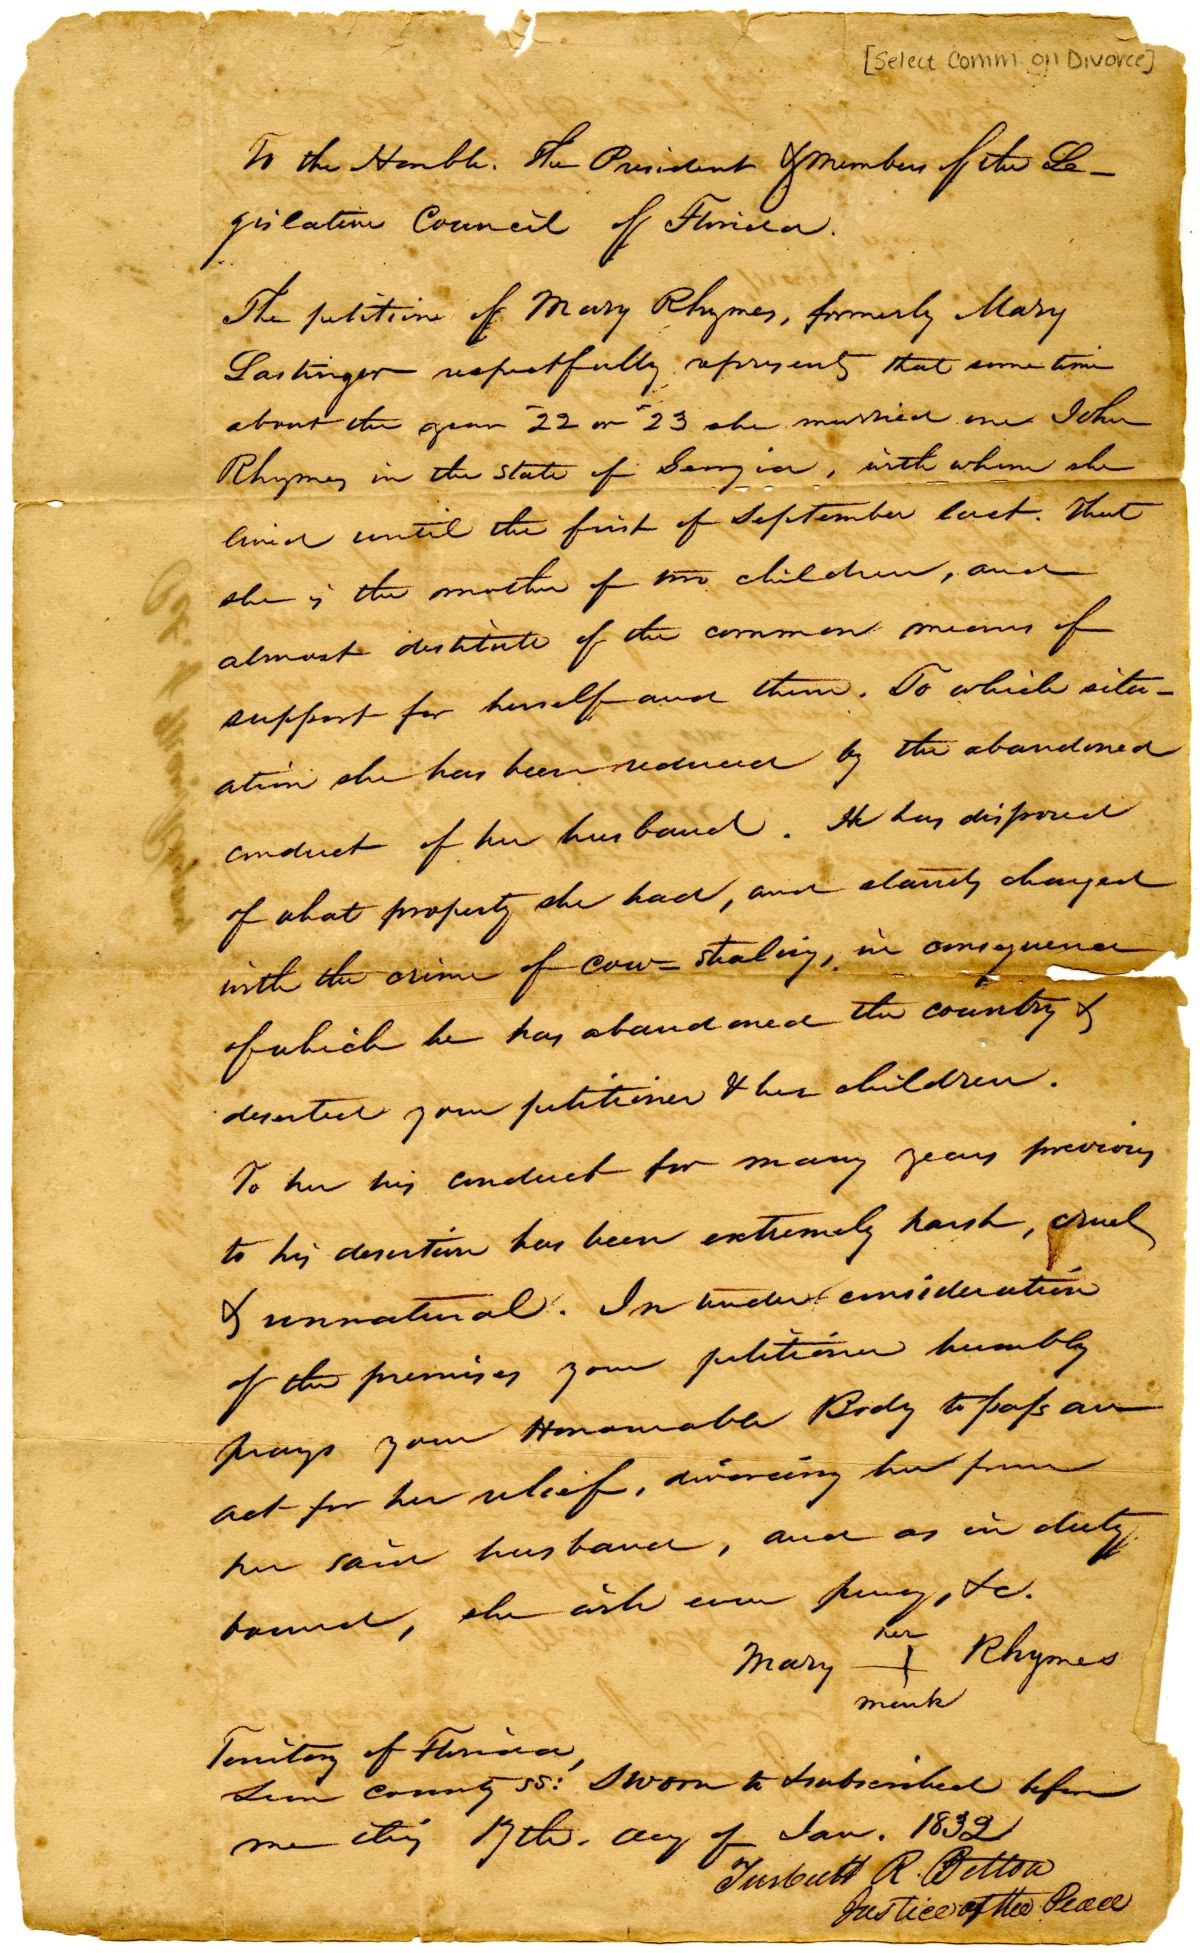 [Select Comm. on Divorce]
To the Honble. The President & members of the Le-
gislative Council of Florida.
The petition of Mary Rhymes, formerly Mary
Lastinger respectfully represents that some time
about the year -22 or -23 she married one John
Rhymes in the state of Georgia, with whom she
lived until the first of September last. That
she is the mother of two children, and
almost destitute of the common means of
support for herself and them. To which situ-
ation she has been reduced by the abandoned
conduct of her husband. He has disposed
of what property she had, and stands charged
with the crime of cow-stealing, in consequence
of which he has abandoned the country &
deserted your petitioner & her children.
To her his conduct for many years previous
to his desertion has been extremely harsh, cruel
& unnatural. In tender consideration
of the premises your petitioner humbly
prays your Honourable Body to pass an
act for her relief, divorcing her from
her said husband, and as in duty
bound, she will ever pray, &c.
her
Mary + Rhymes
mark
Territory of Florida,
Leon County SS: Sworn to & subscribed before
me this 17th. day of Jan. 1832
Turbutt R. Betton
Justice of the Peace